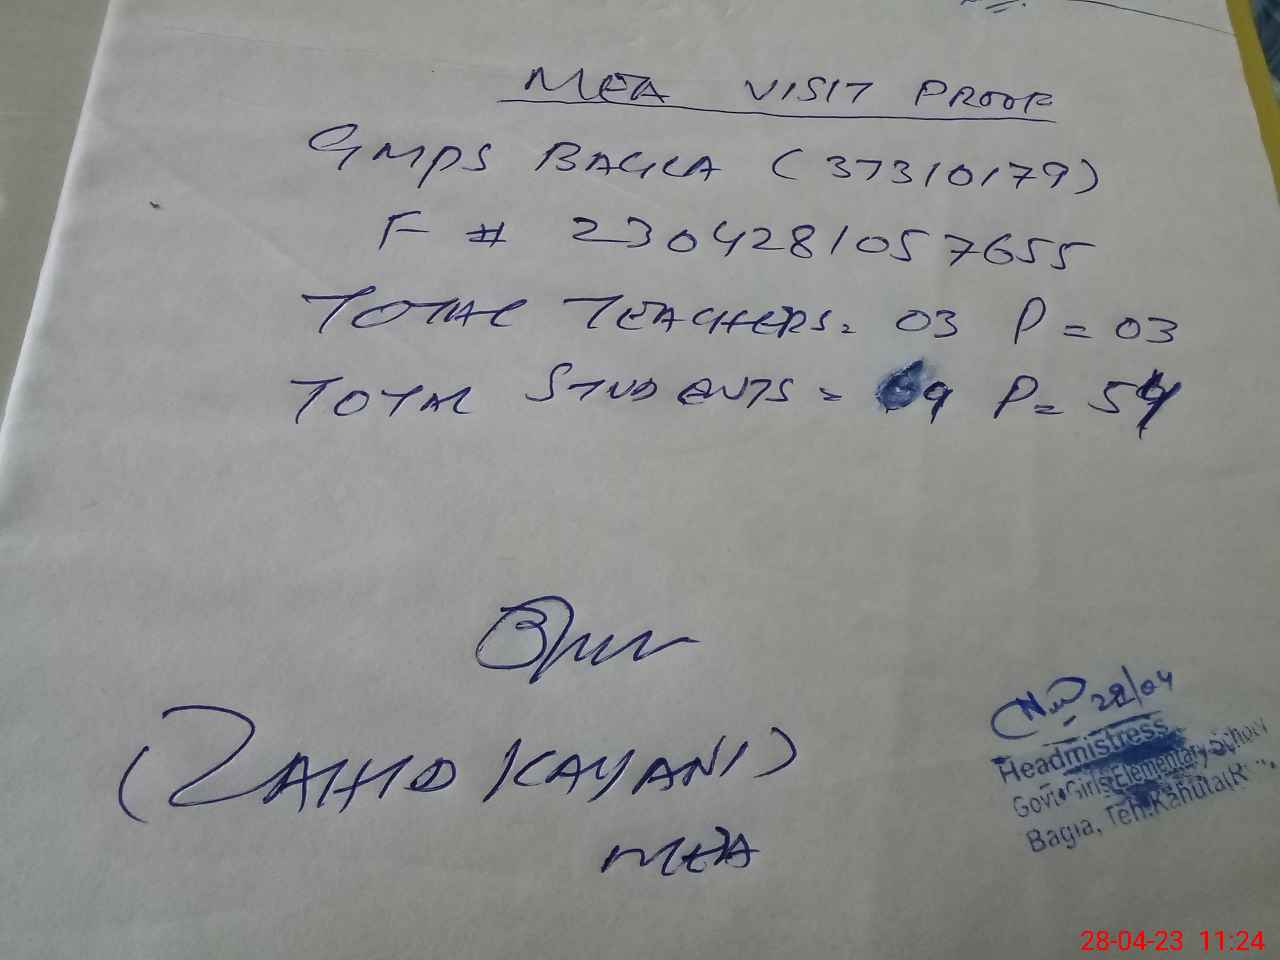 MEA VISIT PROOF
GMPS BAGLA (37310179)
F # 2304281057655
TOTAL TEACHERS = 03 P = 03
TOTAL STUDENTS = 69 P = 54
(ZAHID KAYANI)
MEA
28/04
Headmistress
Govt. Girls Elementary School
Bagla, Teh. Kahuta
28-04-23 11:24